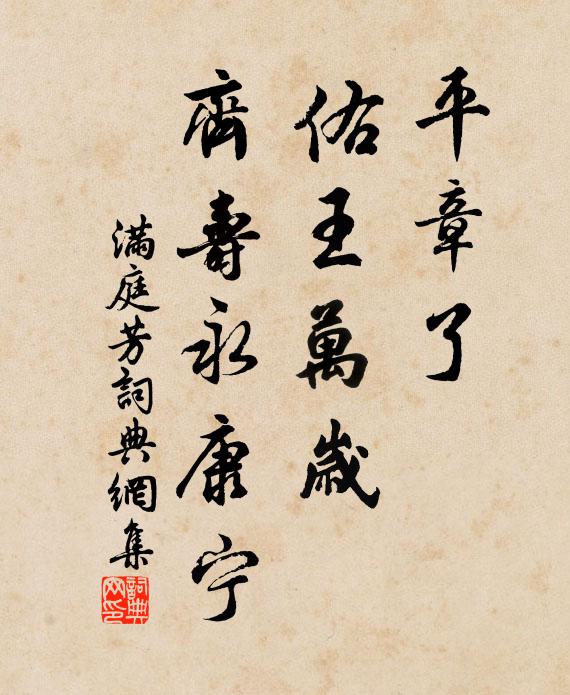 平章了
佑王萬歲
齊壽永康宁
滿庭芳詞典網集
詞典網印